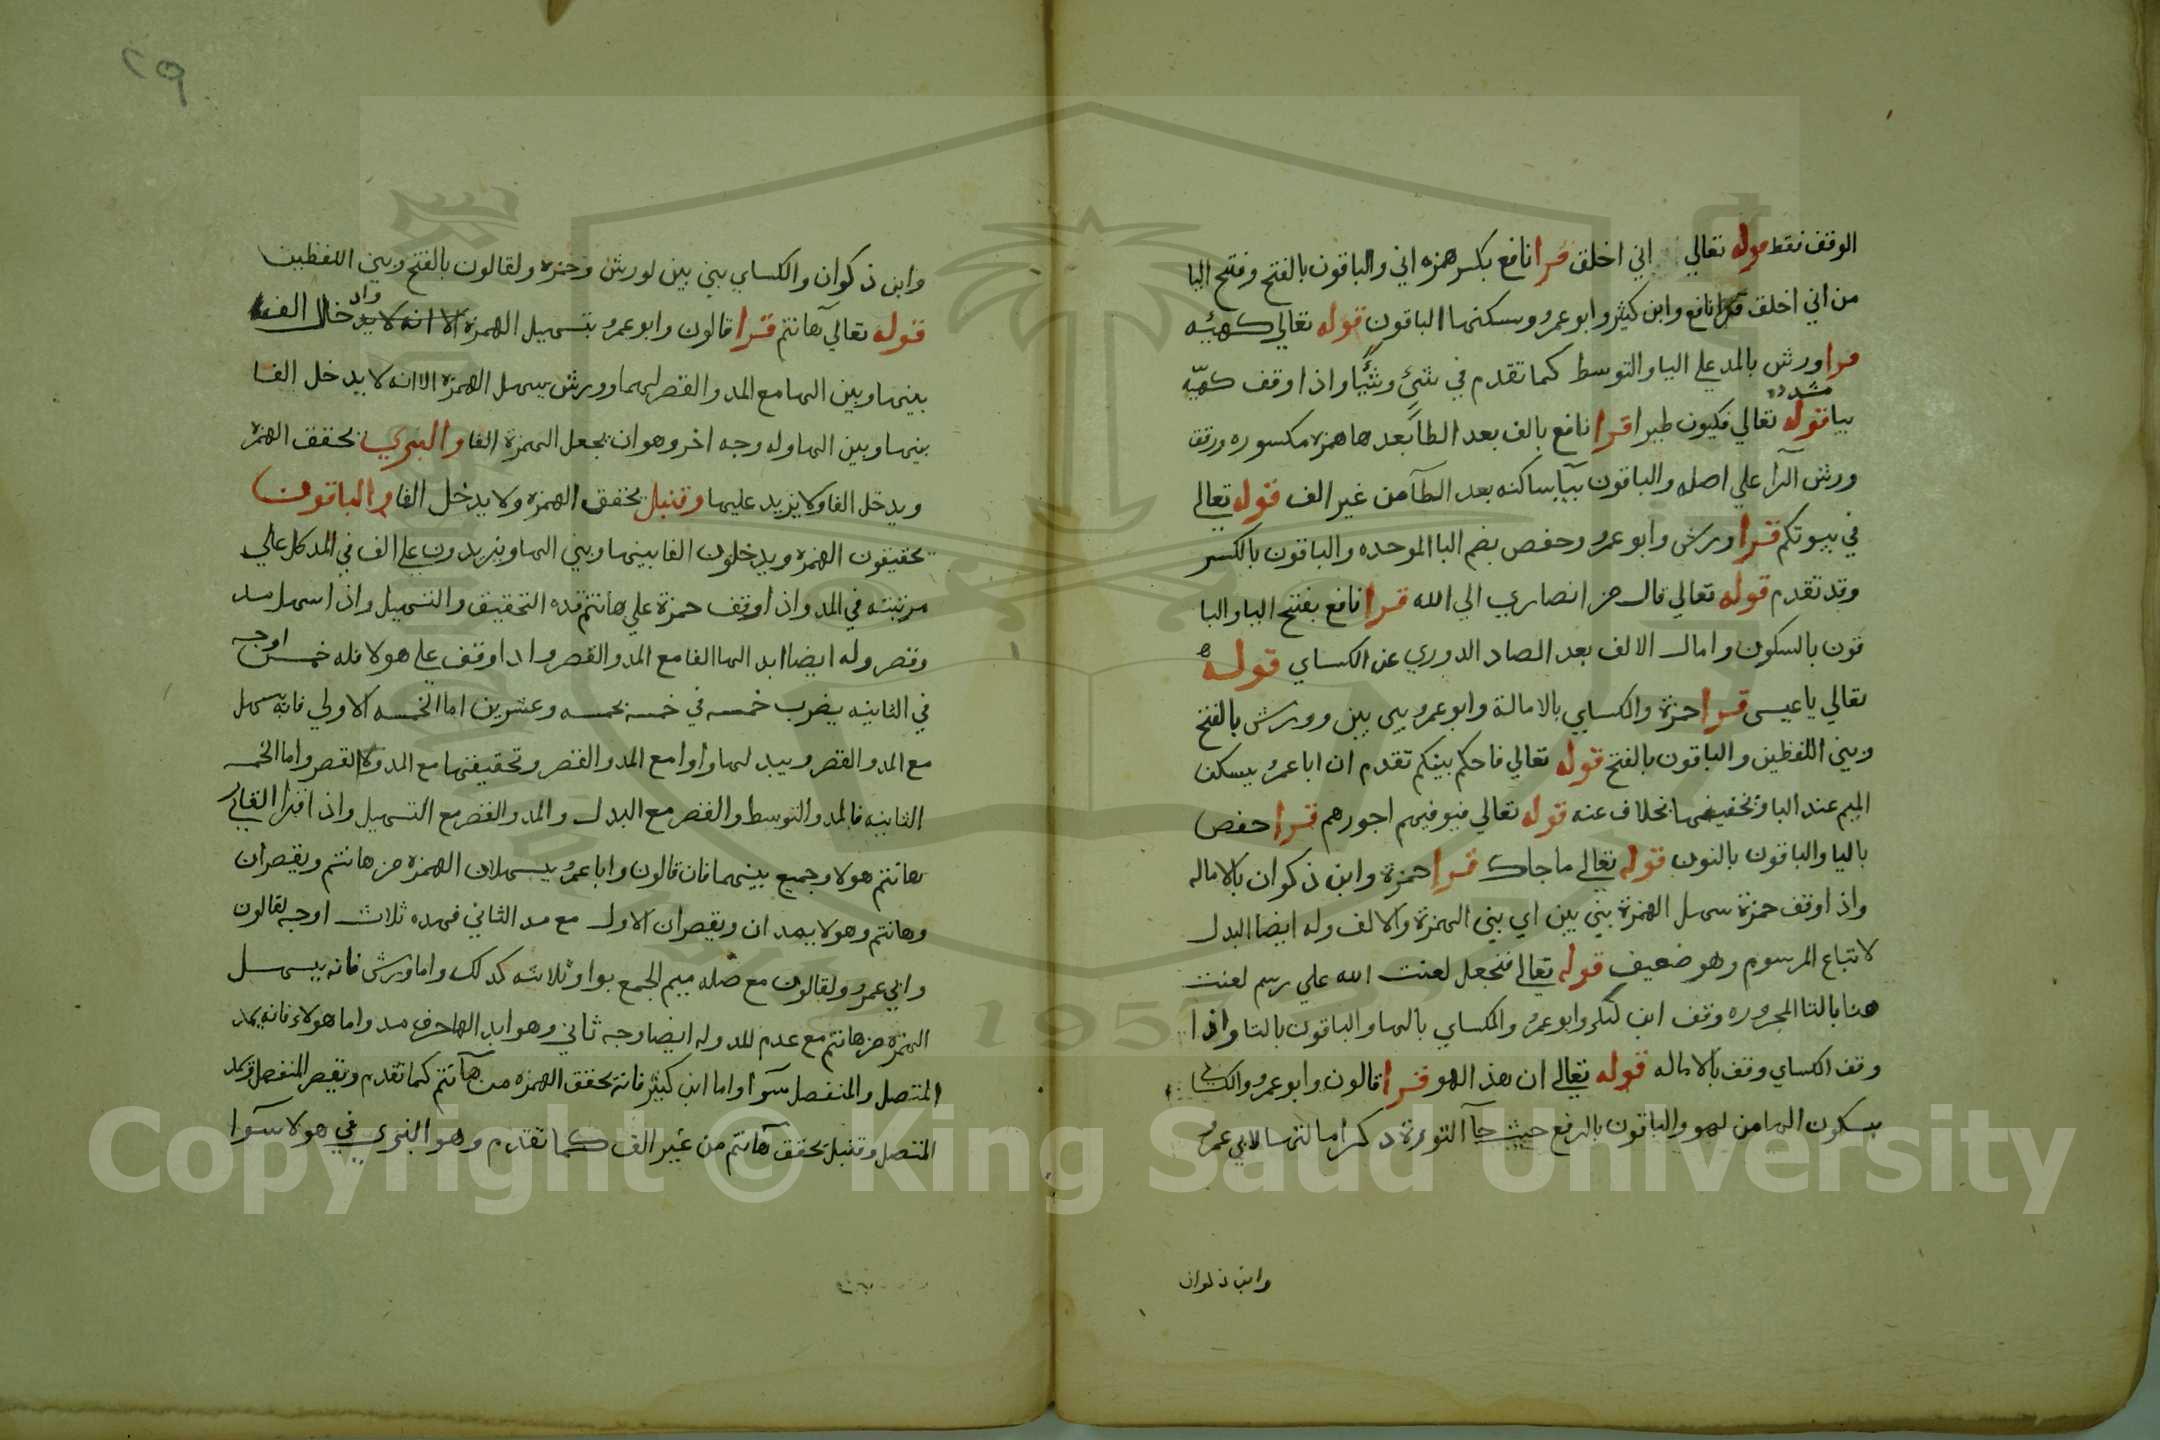 الوقف فقط قوله تعالي اني اخلق قرا نافع بكسر همزه اني والباقون بالفتح وفتح اليا
من اني اخلق قرا نافع وابن كثير وابو عمرو وسكنها الباقون قوله تعالي كهيئه
قرا ورش بالمد علي اليا والتوسط كما تقدم في شئ وشيًا واذا وقف كهيّه
مشدده
بيا قوله تعالي فيكون طيرا قرا نافع بالف بعد الطا بعدها همزه مكسوره ورقق
ورش الرا علي اصله والباقون بيا ساكنه بعد الطا من غير الف قوله تعالي
في بيوتكم قرا ورش وابو عمرو وحفص بضم البا الموحده والباقون بالكسر
وقد تقدم قوله تعالي قال من انصاري الي الله قرا نافع بفتح اليا والبا
قون بالسكون وامال الالف بعد الصاد الدوري عن الكساي قوله
تعالي يا عيسي قرا حمزة والكساي بالامالة وابو عمرو بين بين وورش بالفتح
وبين اللفظين والباقون بالفتح قوله تعالي فاحكم بينكم تقدم ان ابا عمرو يسكن
الميم عند البا وتخفيفها بخلاف عنه قوله تعالي فيوفيهم اجورهم قرا حفص
باليا والباقون بالنون قوله تعالي ما جاك قرا حمزة وابن ذكوان بالاماله
واذا وقف حمزة سهل الهمزة بين بين اي بين الهمزة والالف وله ايضا البدل
لاتباع المرسوم وهو ضعيف قوله تعالي فنجعل لعنت الله علي رسم لعنت
هنا بالتا المجروره وقف ابن كثير وابو عمرو والكساي بالها والباقون بالتا واذا
وقف الكساي وقف بالاماله قوله تعالي ان هذا لهو قرا قالون وابو عمرو والكساي
بسكون الها من لهو والباقون بالرفع حيث جا التورة ذكر امالتها لابي عمرو
وابن ذكوان
٢٩
وابن ذكوان والكساي بين بين لورش وحمزه ولقالون بالفتح وبين اللفظين
قوله تعالي هآنتم قرا قالون وابو عمرو بتسهيل الهمزة الا انه لا يد وادخال الف
بينها وبين الها مع المد والقصر لهما وورش يسهل الهمزة الا انه لا يدخل الفا
بينها وبين الها وله وجه اخر وهو ان يجعل الهمزة الفا والبزي يحقق الهمزة
ويدخل الفا ولا يزيد عليها وقنبل يحقق الهمزه ولا يدخل الفا والباقون
يحقيقون الهمزه ويدخلون الفا بينها وبين الها ويزيدون علي الف في المد كل علي
مرتبته في المد واذا وقف حمزة علي هانتم فله التحقيق والتسهيل واذا سهل مد
وقصر وله ايضا ابد الها الفا مع المد والقصر واذا وقف علي هولا فله خمس اوجه
في الثانيه يضرب خمسه في خمسه بخمسه وعشرين اما الخمسه الاولي فانه يسهل
مع المد والقصر ويبدلها واوا مع المد والقصر وتحقيقها مع المد ولا القصر واما الخمسه
الثانيه فالمد والتوسط والقصر مع البدل والمد والقصر مع التسهيل واذا قرا القاري
هانتم هولا وجميع بينهما فان قالون وابا عمرو يسهلان الهمزه من هانتم ويقصران
وهانتم وهولا يمدان ويقصران الاول مع مد الثاني فهده ثلاث اوجه لقالون
وابي عمرو ولقالون مع ضله ميم الجمع بواو ثلاثه كدلك واما ورش فانه يسهل
الهمزه من هانتم مع عدم المد وله ايضا وجه ثاني وهو ابد الها حرف مد واما هولاء فانه يمد
المتصل والمنفصل سوا واما ابن كثير فانه يحقق الهمزه من هآنتم كما تقدم ويقصر المنفصل ويمد
المتصل وقنبل يحقق هآنتم من غير الف كما تقدم وهو البزي في هولا سوا
Copyright © King Saud University
1957